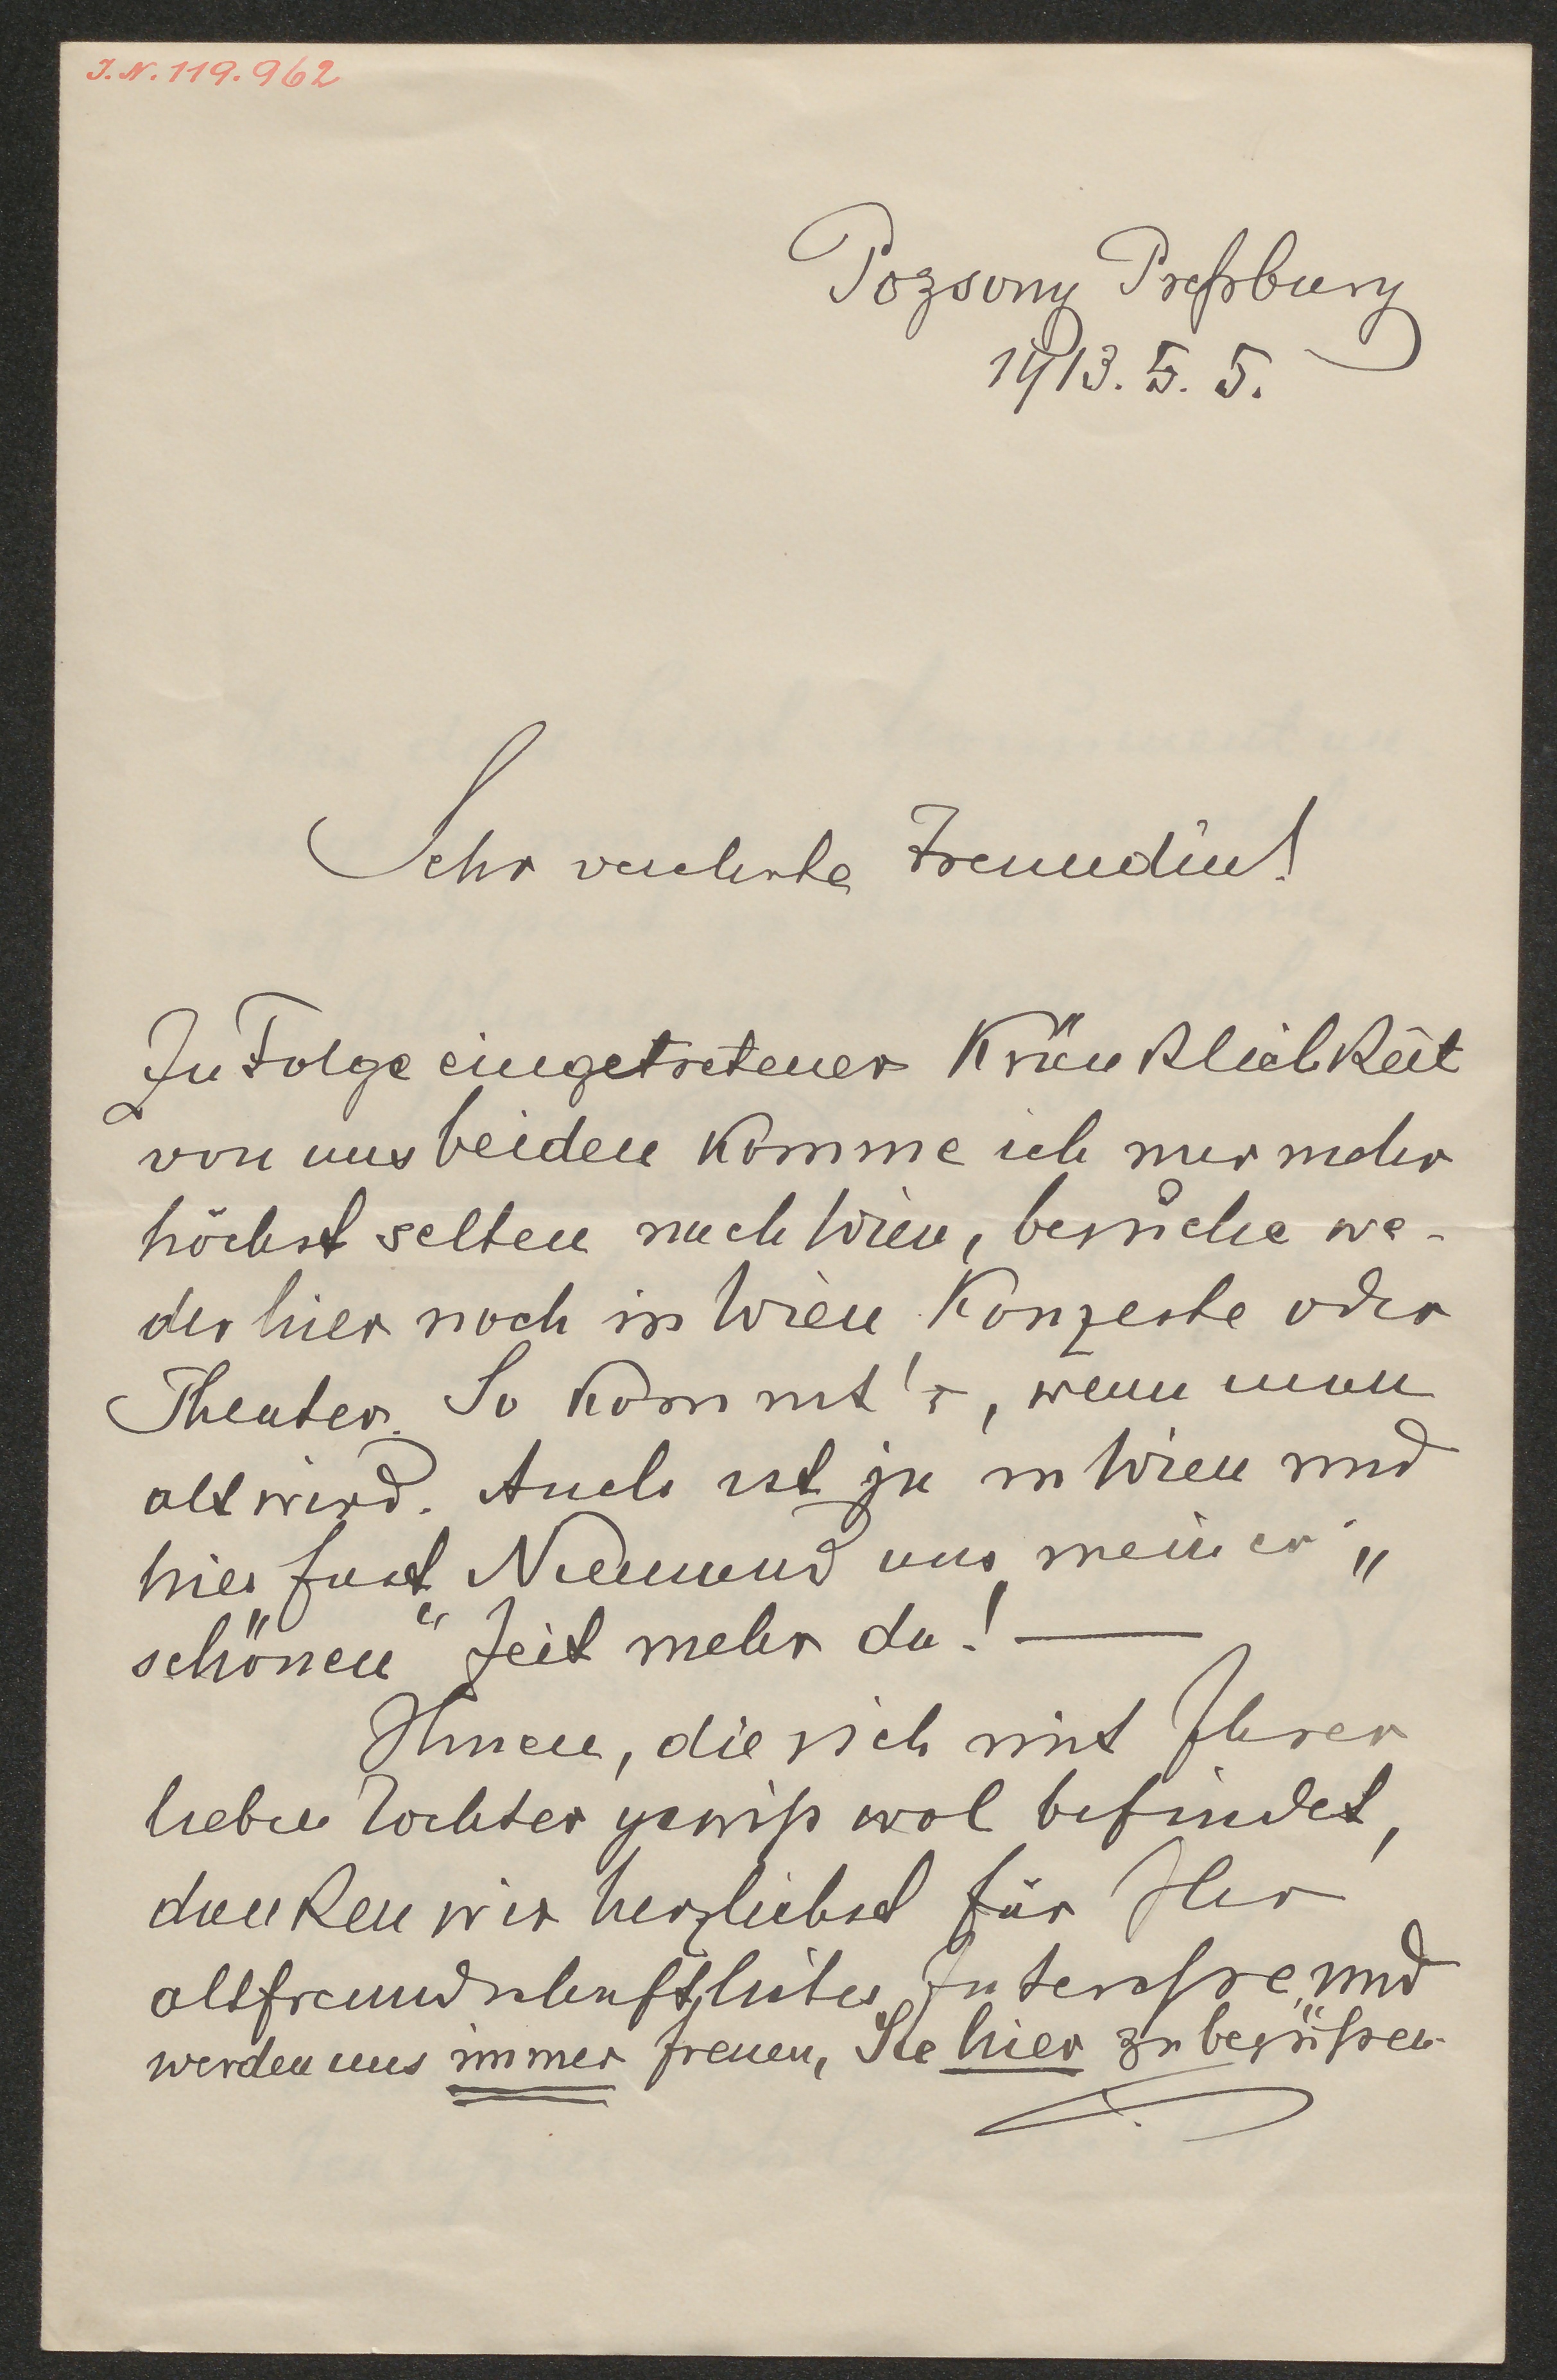 I.N. 119.962
Pozsony Preßburg
1913. 5. 5.
Sehr verehrte Freundin!
In Folge eingetretener Kränklichkeit
von uns beiden komme ich nur mehr
höchst selten nach Wien, besuche we-
der hier noch in Wien Konzerte oder
Theater. So kommt's, wenn man
alt wird. Auch ist ja in Wien und
hier fast Niemand aus meiner „
schönen“ Zeit mehr da! —
Ihnen, die sich mit Ihrer
lieben Tochter gewiß wol befindet,
danken wir herzlichst für Ihr
altfreundschaftliches Interesse, und
werden uns immer freuen, Sie hier zu begrüßen.